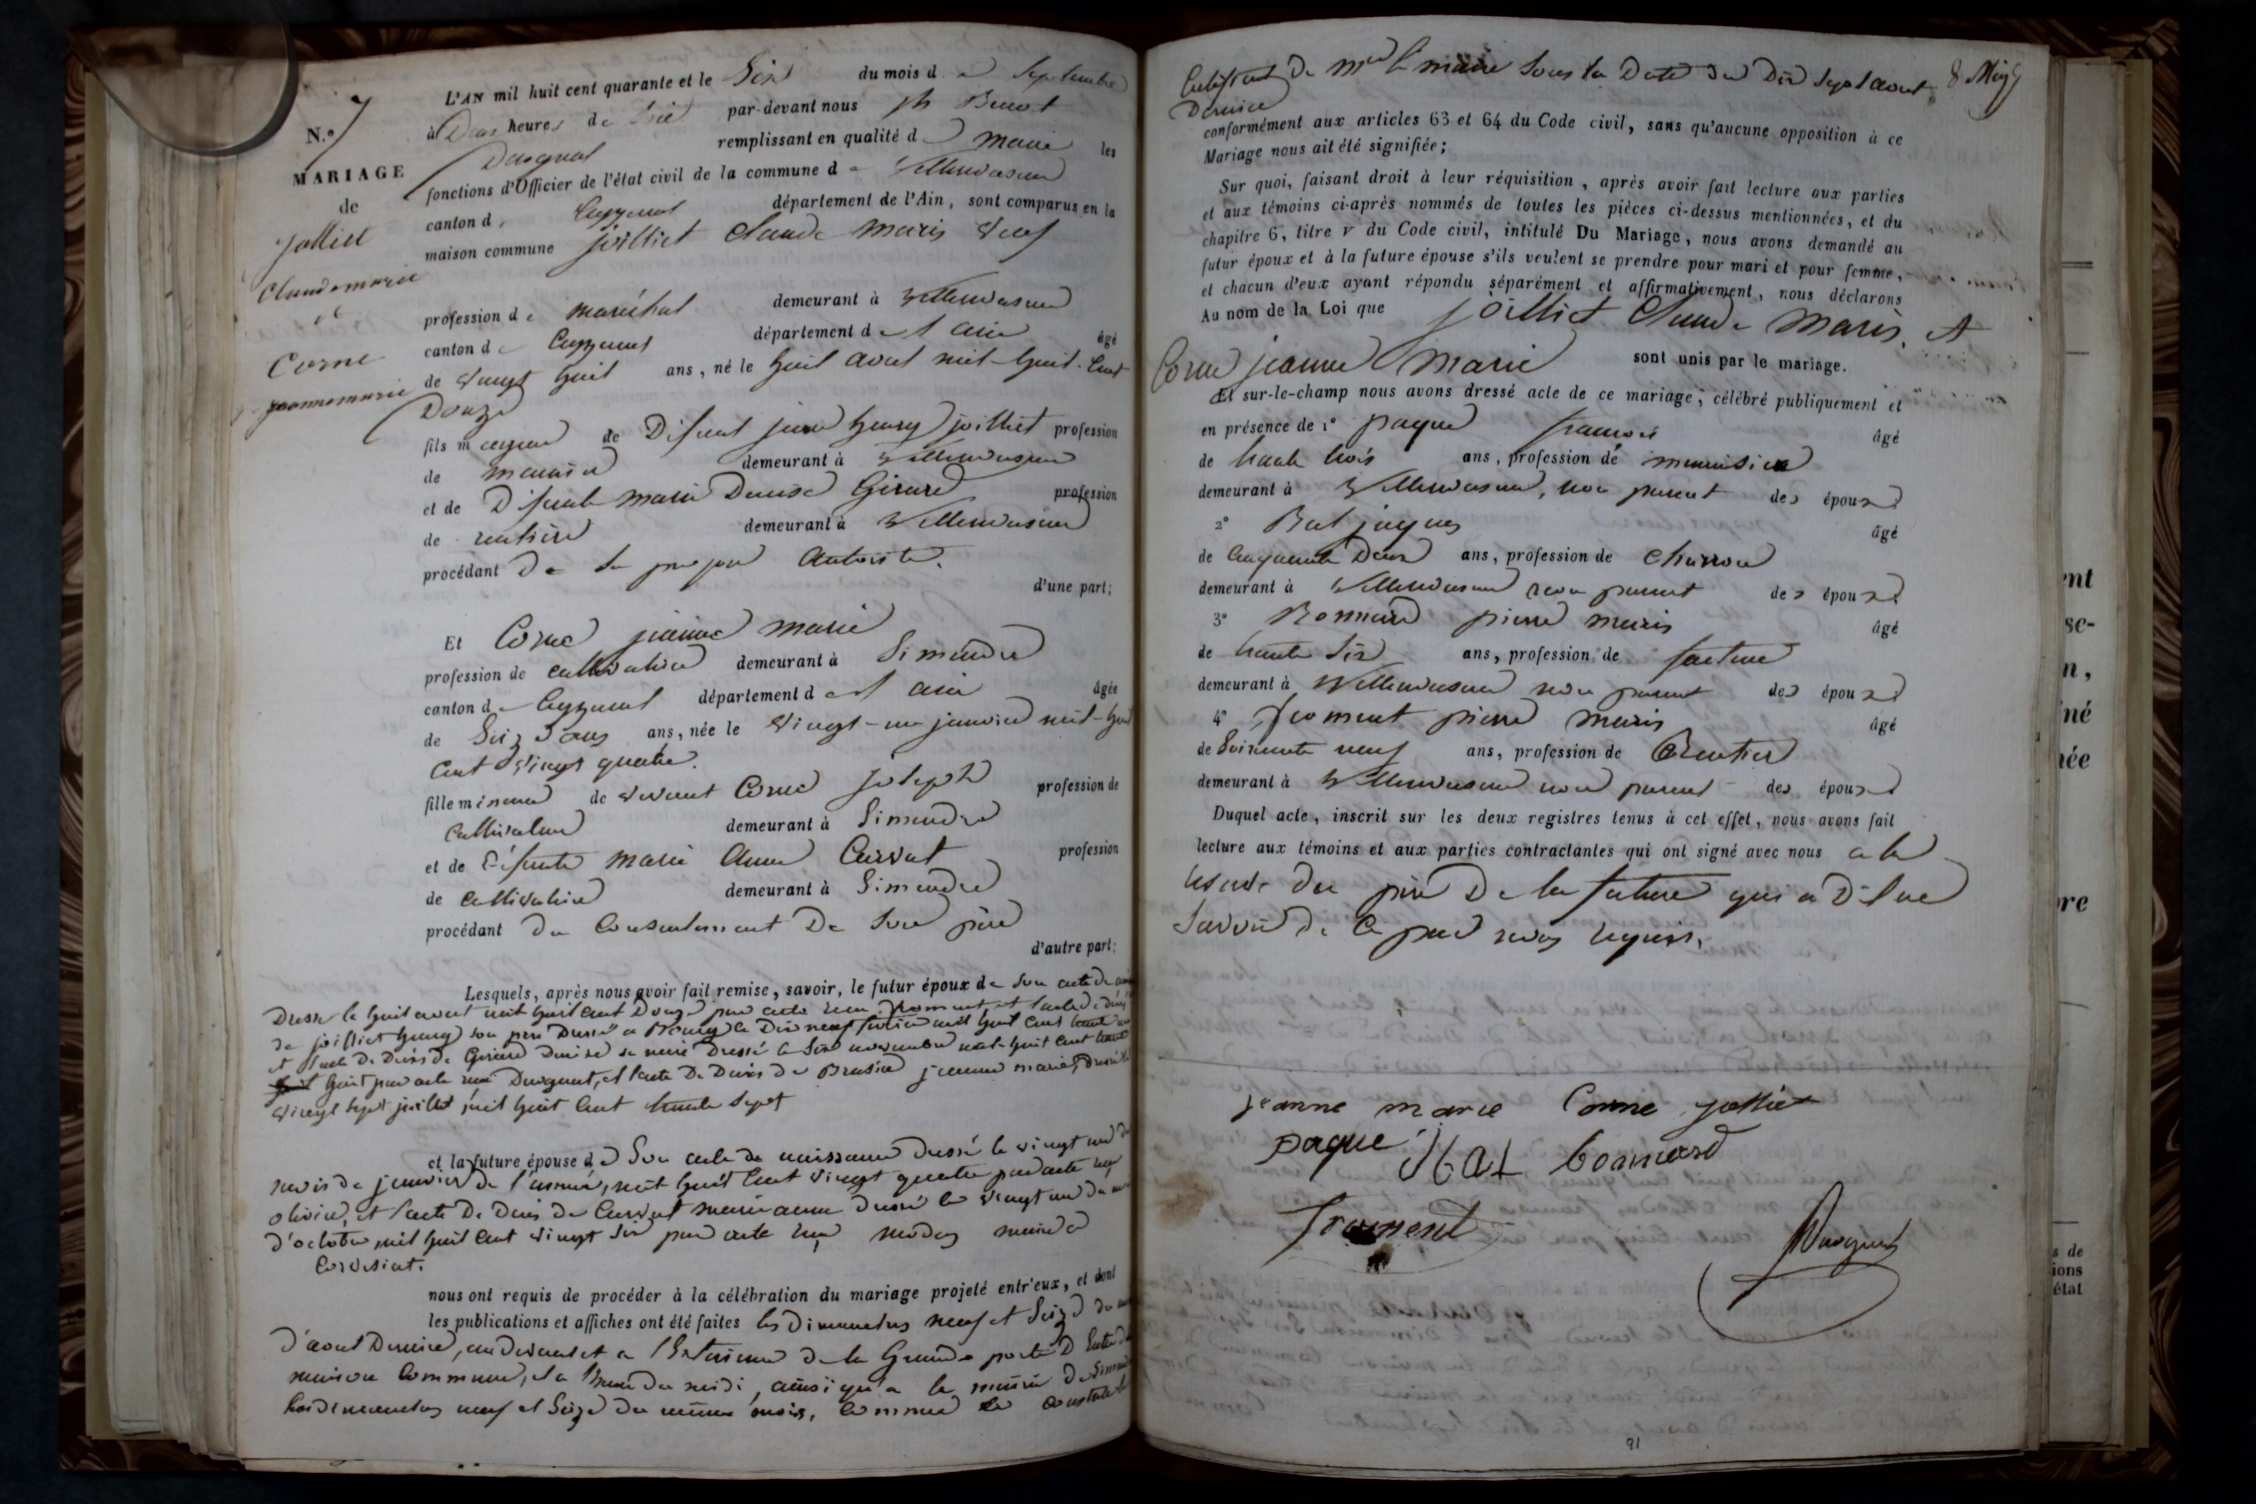 N.º 7
MARIAGE
de
Jolliet
Claude marie
et
Corne
jeanne marie
L'AN mil huit cent quarante et le Six du mois de Septembre
à Deux heures de par-devant nous Benoit
Duregnat remplissant en qualité de maire les
fonctions d'Officier de l'état civil de la commune de Villereversure
canton de Ceyzeriat département de l'Ain, sont comparus en la
maison commune joilliet Claude Marie Veuf
profession de maréchal demeurant à Villereversure
canton de Ceyzeriat département de l'ain âgé
de vingt huit ans, né le huit aout mil-huit-Cent
Douze
fils majeur de Défunt henry joilliet profession
de demeurant à Villereversure
et de Défunte marie Denise Girard profession
de rentière demeurant à Villereversure
procédant De sa propre Autorité.
d'une part;
Et Corne jeanne marie
profession de cultivatrice demeurant à Simandre
canton de Ceyzeriat département de l'ain âgée
de Seize ans ans, née le vingt-un janvier mil-huit
Cent vingt quatre.
fille mineure de vivant Corne Joseph profession de
Cultivateur demeurant à Simandre
et de Défunte marie Anne Curvat profession
de Cultivatrice demeurant à Simandre
procédant du Consentement De Son père
d'autre part;
Lesquels, après nous avoir fait remise, savoir, le futur époux de Son acte de
Dressé le huit aout mil huit Cent Douze par acte reçu froment et l'acte de décès
de joilliet henry son père Dressé a Bourg le Dix neuf mil huit Cent
et l'acte De Décès de Girard Denise sa mère Dressé le Six novembre mil huit cent trente
huit par acte reçu Duregnat, et l'acte De Décès De jeanne marie, Dressé le
vingt Sept juillet mil huit Cent trente Sept
et la future épouse de Son acte de naissance Dressé le vingt un du
mois de janvier de l'année mil huit Cent vingt quatre par acte reçu
olivier, et l'acte De Décès De Curvat marie anne dressé le vingt un du mois
d'octobre mil huit Cent vingt Six par acte reçu maire de
Corveissiat.
nous ont requis de procéder à la célébration du mariage projeté entr'eux, et dont
les publications et affiches ont été faites les Dimanches neuf et Seize du mois
d'aout Dernier, au devant et a l'Extérieur de la Grande porte D'Entrée de
maison Commune, a l'heure de midi, ainsi qu'a la mairie de Simandre
les dimanches neuf et Seize du même mois, Comme le constate le
Certificat De mr le maire Sous la Date du Dix Sept aout
Dernier
conformément aux articles 63 et 64 du Code civil, sans qu'aucune opposition à ce
Mariage nous ait été signifiée;
Sur quoi, faisant droit à leur réquisition, après avoir fait lecture aux parties
et aux témoins ci-après nommés de toutes les pièces ci-dessus mentionnées, et du
chapitre 6, titre v du Code civil, intitulé Du Mariage, nous avons demandé au
futur époux et à la future épouse s'ils veulent se prendre pour mari et pour femme,
et chacun d'eux ayant répondu séparément et affirmativement, nous déclarons
Au nom de la Loi que joilliet Claude Marie, et
Corne jeanne Marie sont unis par le mariage.
Et sur-le-champ nous avons dressé acte de ce mariage, célébré publiquement et
en présence de 1º paque francois âgé
de trente trois ans, profession de menuisier
demeurant à Villereversure, non parent des époux
2º Bal jacques âgé
de Cinquante Deux ans, profession de Charron
demeurant à Villereversure non parent des époux
3º Bonnard pierre marie âgé
de trente Six ans, profession de facteur
demeurant à Villereversure non parent des époux
4º froment pierre marie âgé
de Soixante neuf ans, profession de Rentier
demeurant à Villereversure non parent des époux
Duquel acte, inscrit sur les deux registres tenus à cet effet, nous avons fait
lecture aux témoins et aux parties contractantes qui ont signé avec nous a la
réserve du père De la future qui a Dit ne
Savoir De Ce par nous requis.
jeanne marie Corne jolliet
paque Bal bonnard
froment
Duregnat
91